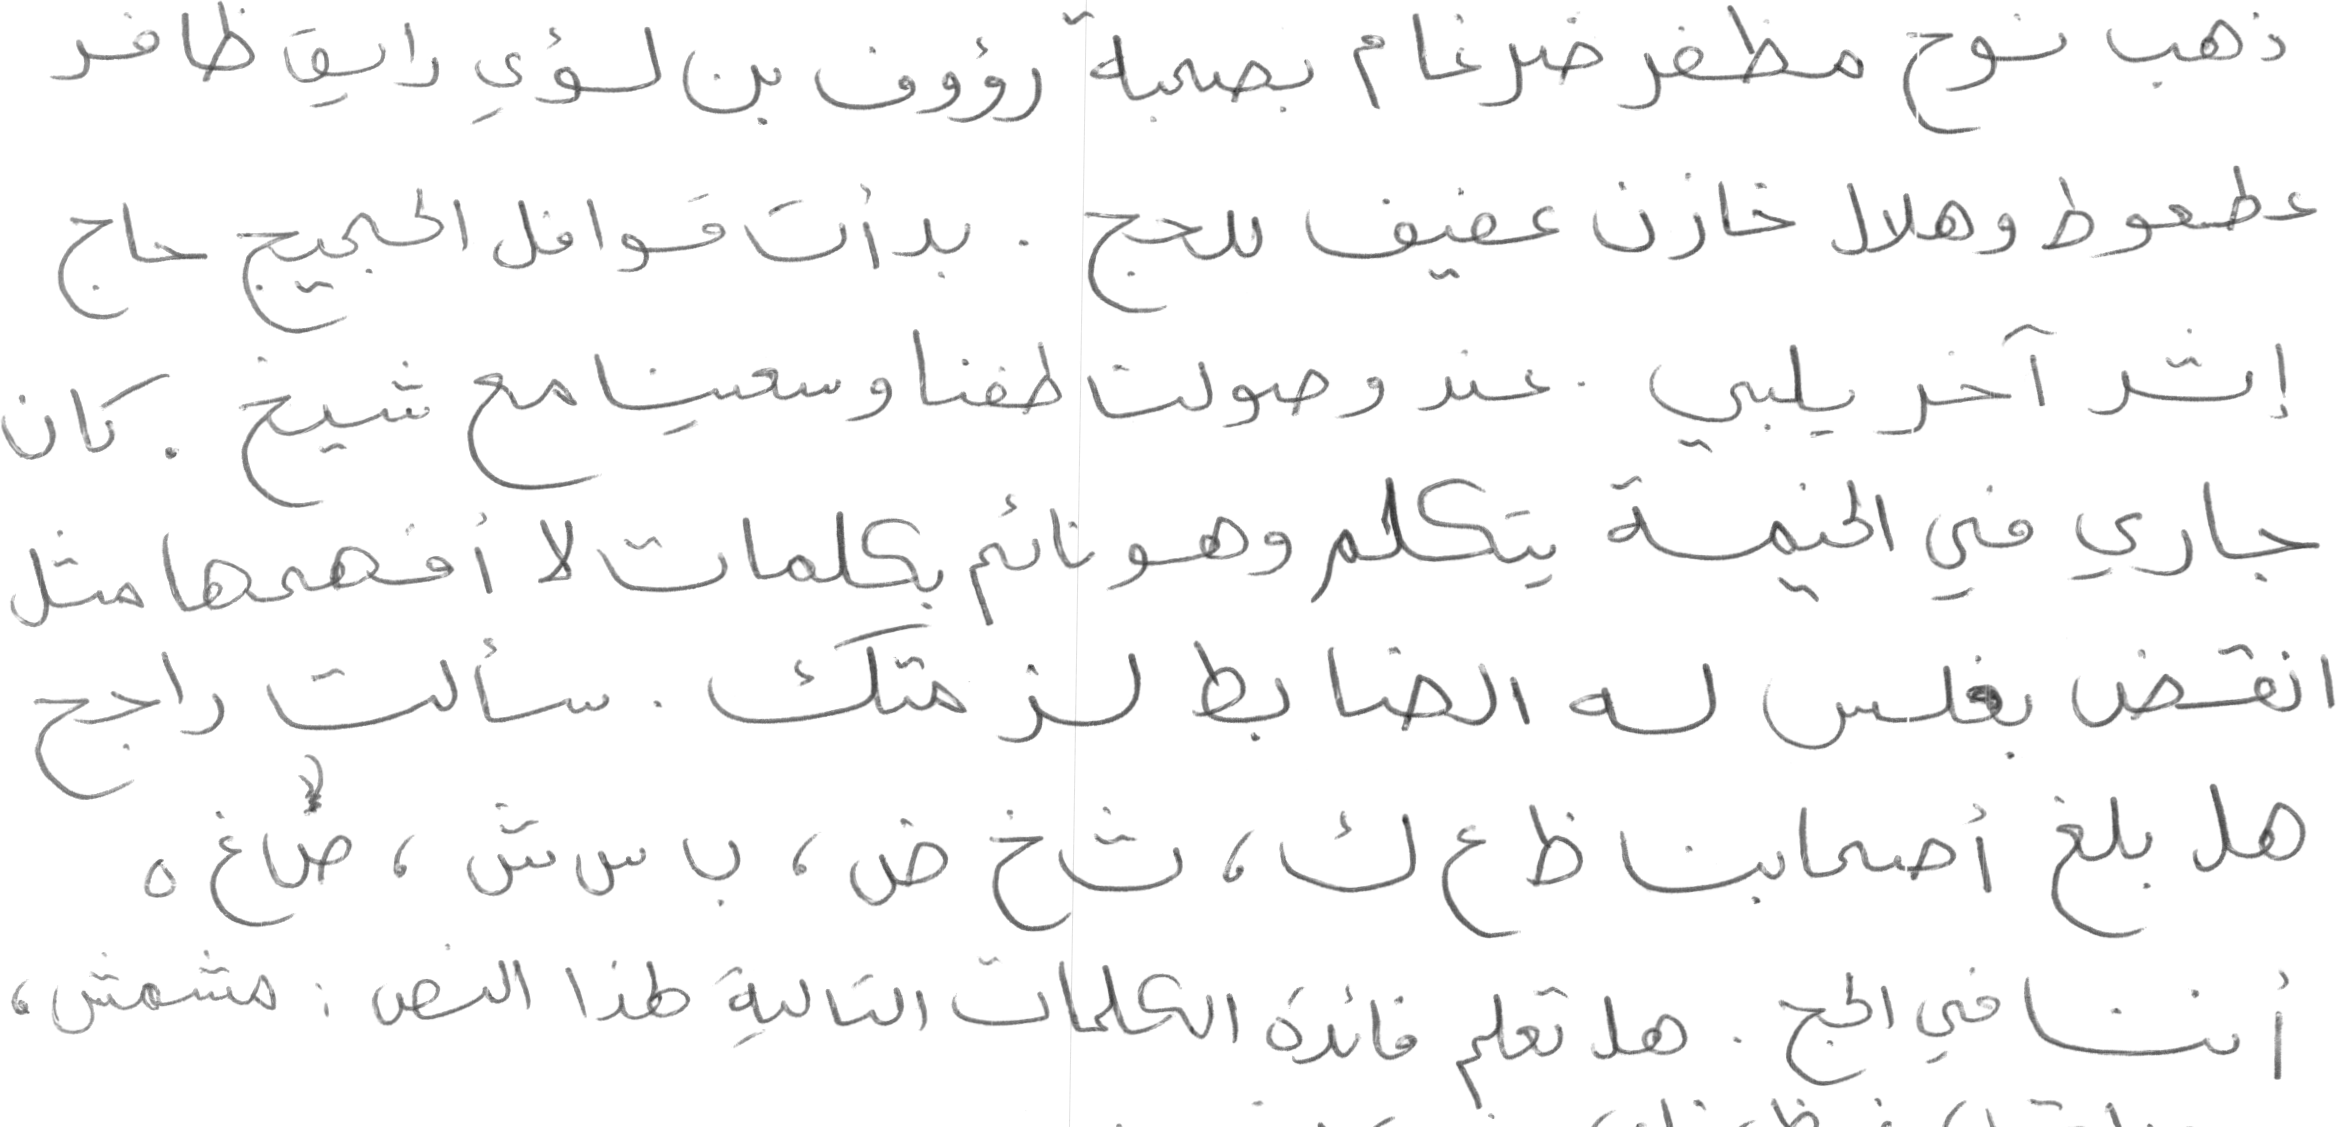 ذهب نوح مظفر ضرغام بصحبة رؤوف بن لؤي رايق ظافر
عطعوط وهلال خازن عفيف للحج . بدأت قوافل الحجيج حاج
إثر آخر يلبي . عند وصولت طفنا وسعينا مع شيخ . كان
جاري في الخيمة يتكلم وهو نائم بكلمات لا أفهمها مثل
انقض بغلس له الضابط لزمتك . سألت راجح
هل بلغ أصحابنا ظ ع ك ، ث خ ض ، ب س ش ، ص غ ه
أننا في الحج . هل تعلم فائدة الكلمات التالية لهذا النص : مشمش ،